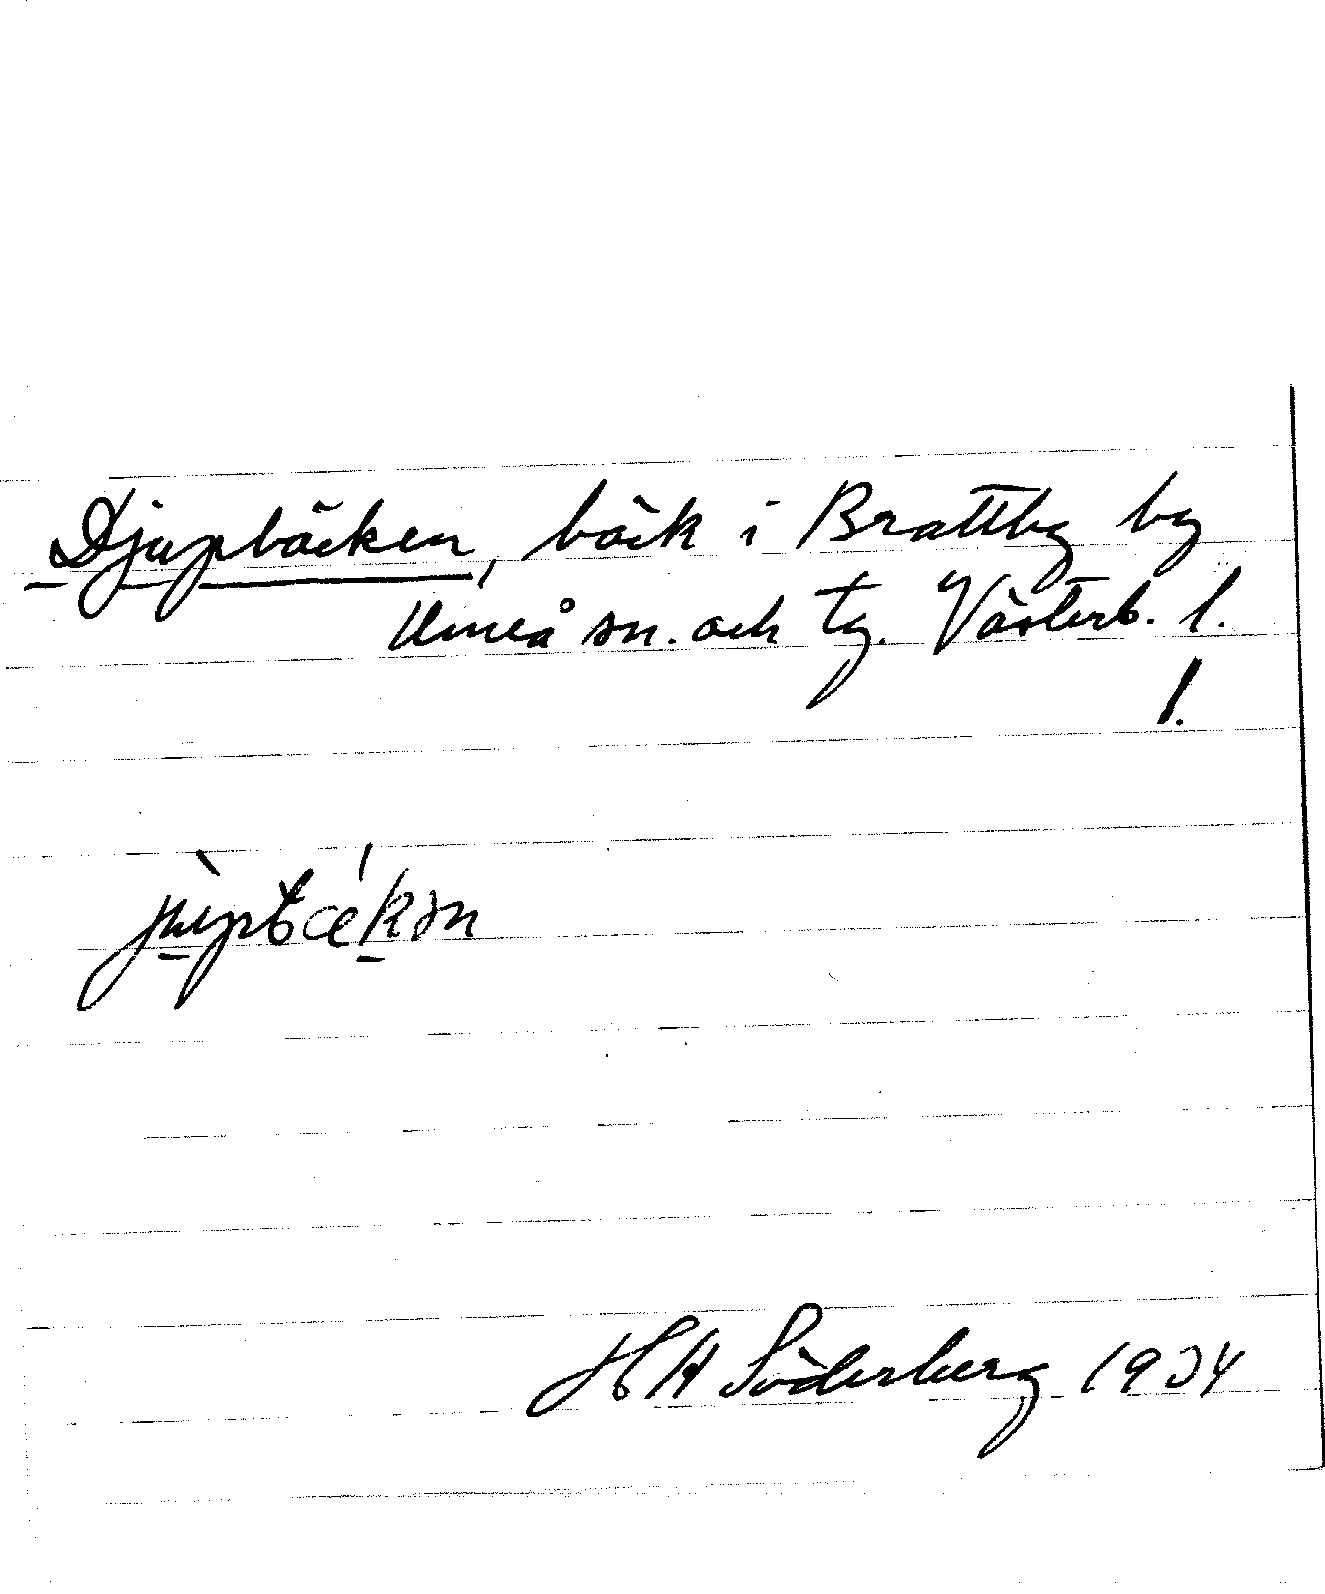 Djupbäcken, bäck i Brattby by
Umeå sn. och tg. Västerb. l.
!
H H Söderberg 1934